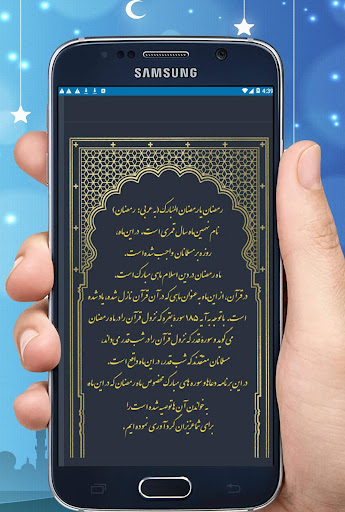 SAMSUNG
4:39
رمضان یا رمضان المبارک (به عربی: رمضان)
نام نهمین ماه سال قمری است. در این ماه،
روزه بر مسلمانان واجب شده است.
ماه رمضان در دین اسلام ماهی مبارک است.
در قرآن، از این ماه به عنوان ماهی که در آن قرآن نازل شده، یاد شده
است. با توجه به آیه ۱۸۵ سوره بقره که نزول قرآن را در ماه رمضان
می گوید و سوره قدر که نزول قرآن را در شب قدر می داند،
مسلمانان معتقدند که شب قدر، در این ماه واقع است.
در این برنامه دعاها و سوره های مبارک مخصوص ماه رمضان که در این ماه
به خواندن آن ها توصیه شده است را
برای شما عزیزان گردآوری نموده ایم.